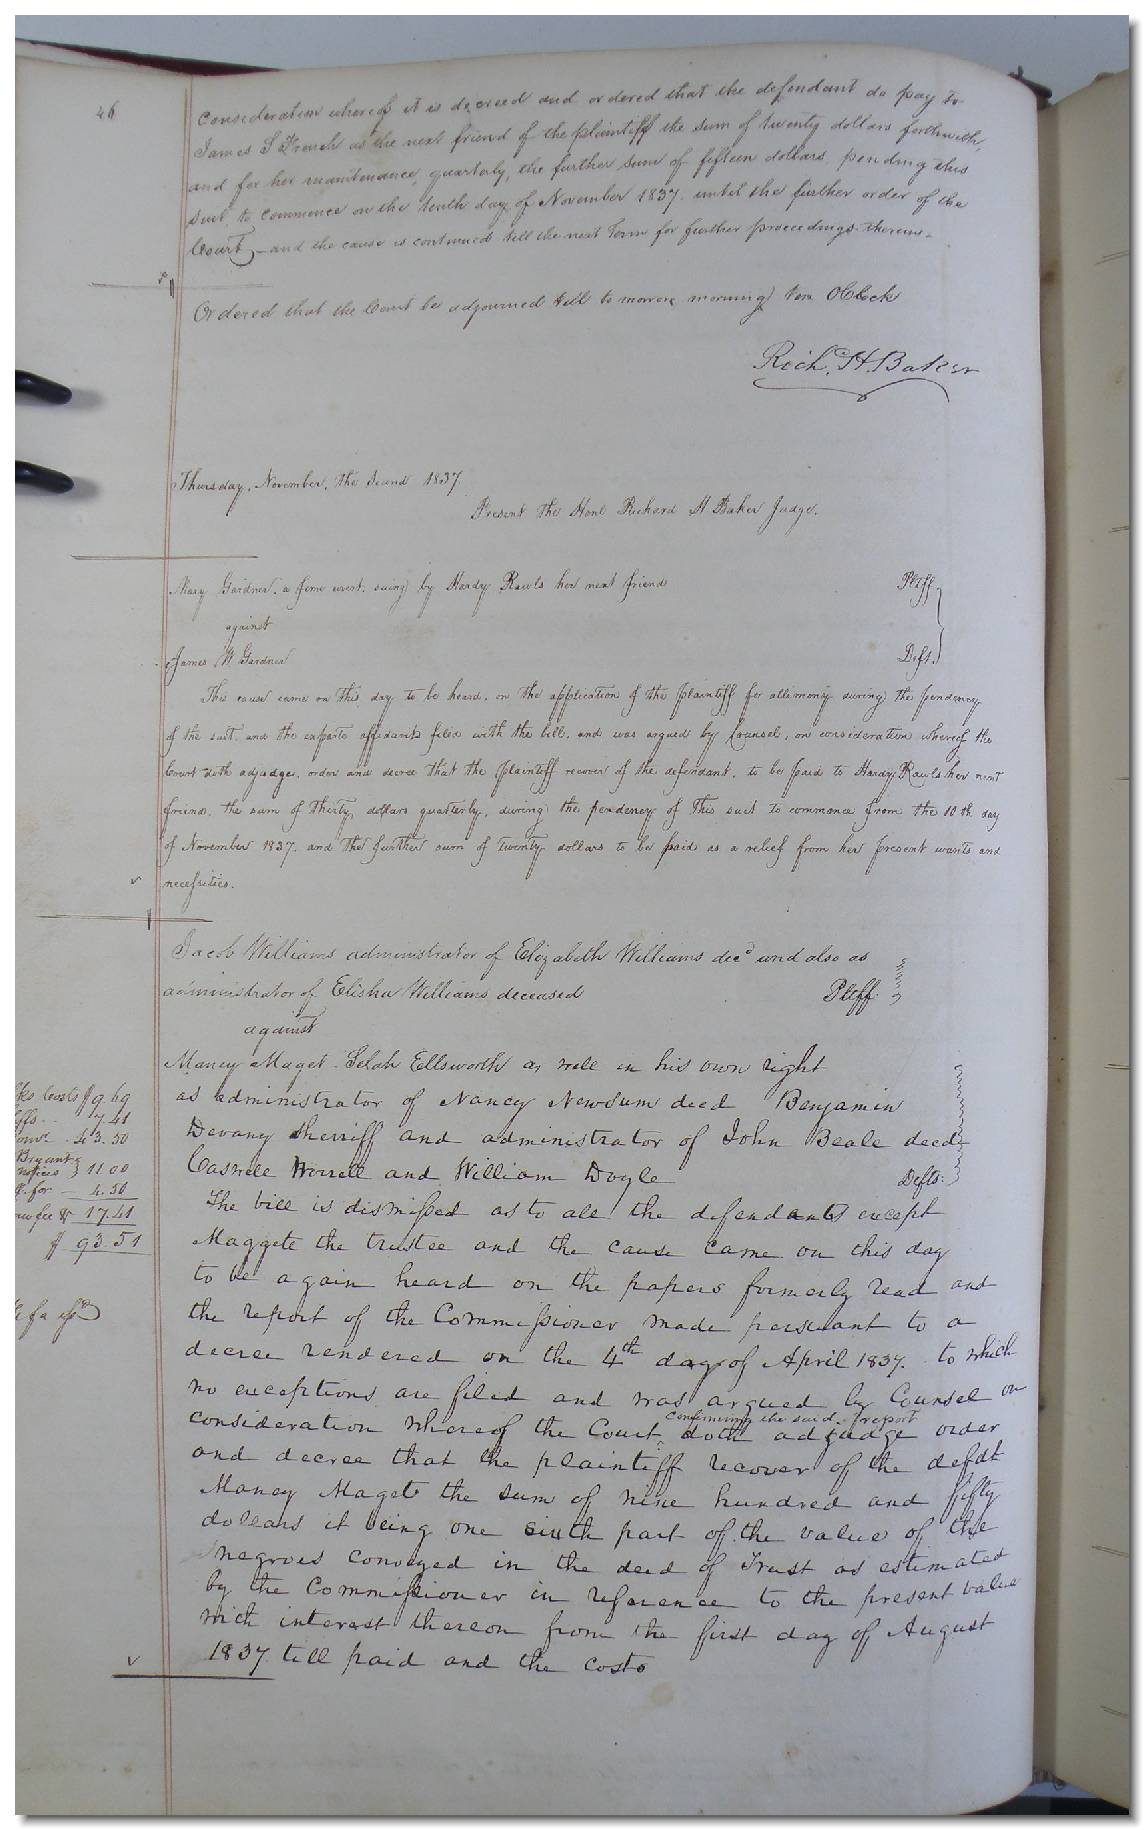 46
consideration whereof it is decreed and ordered that the defendant do pay to
James S French as the next friend of the plaintiff the sum of twenty dollars forthwith,
and for her maintenance, quarterly, the further sum of fifteen dollars, pending this
suit, to commence on the tenth day of November 1837. until the further order of the
Court, - and the cause is continued till the next Term for further proceedings therein.
Ordered that the Court be adjourned till to morrow morning ten OClock
Rich. H. Baker
Thursday, November, the second 1837
Present the Honl Richard H Baker Judge.
Mary Gardner, a feme covert, suing by Hardy Rawls her next friend Pltff.
against
James W Gardner Deft.
This cause came on this day to be heard, on the application of the plaintiff for allimony during the pendency
of the suit, and the exparte affidavits filed with the bill, and was argued by Counsel, on consideration whereof the
Court doth adjudge, order and decree that the plaintiff recover of the defendant, to be paid to Hardy Rawls her next
friend, the sum of thirty dollars quarterly, during the pendency of this suit to commence from the 10th day
of November 1837. and the further sum of twenty dollars to be paid as a relief from her present wants and
necessities.
Jacob Williams administrator of Elizabeth Williams decd and also as
administrator of Elisha Williams deceased Pltff
against
Maney Maget Selah Ellsworth as well in his own right
as administrator of Nancy Newsum decd Benjamin
Devany Sherriff and administrator of John Beale decd
Caswell Worrell and William Doyle Defts.
The bill is dismissed as to all the defendants except
Maggete the trustee and the cause came on this day
to be again heard on the papers formerly read and
the report of the Commissioner made persuant to a
decree rendered on the 4th day of April 1837. to which
no exceptions are filed and was argued by Counsel on
confirming the said report
consideration whereof the Court doth adjudge order
and decree that the plaintiff recover of the defdt
Maney Maget the sum of nine hundred and fifty
dollars it being one sixth part of the value of the
negroes conveyed in the deed of Trust as estimated
by the Commissioner in reference to the present value
with interest thereon from the first day of August
1837 till paid and the costs
costs $9.69
7.41
43.50
Bryant
notices } 11.00
for - 4.50
fee & 17.41
$ 93.51
fa